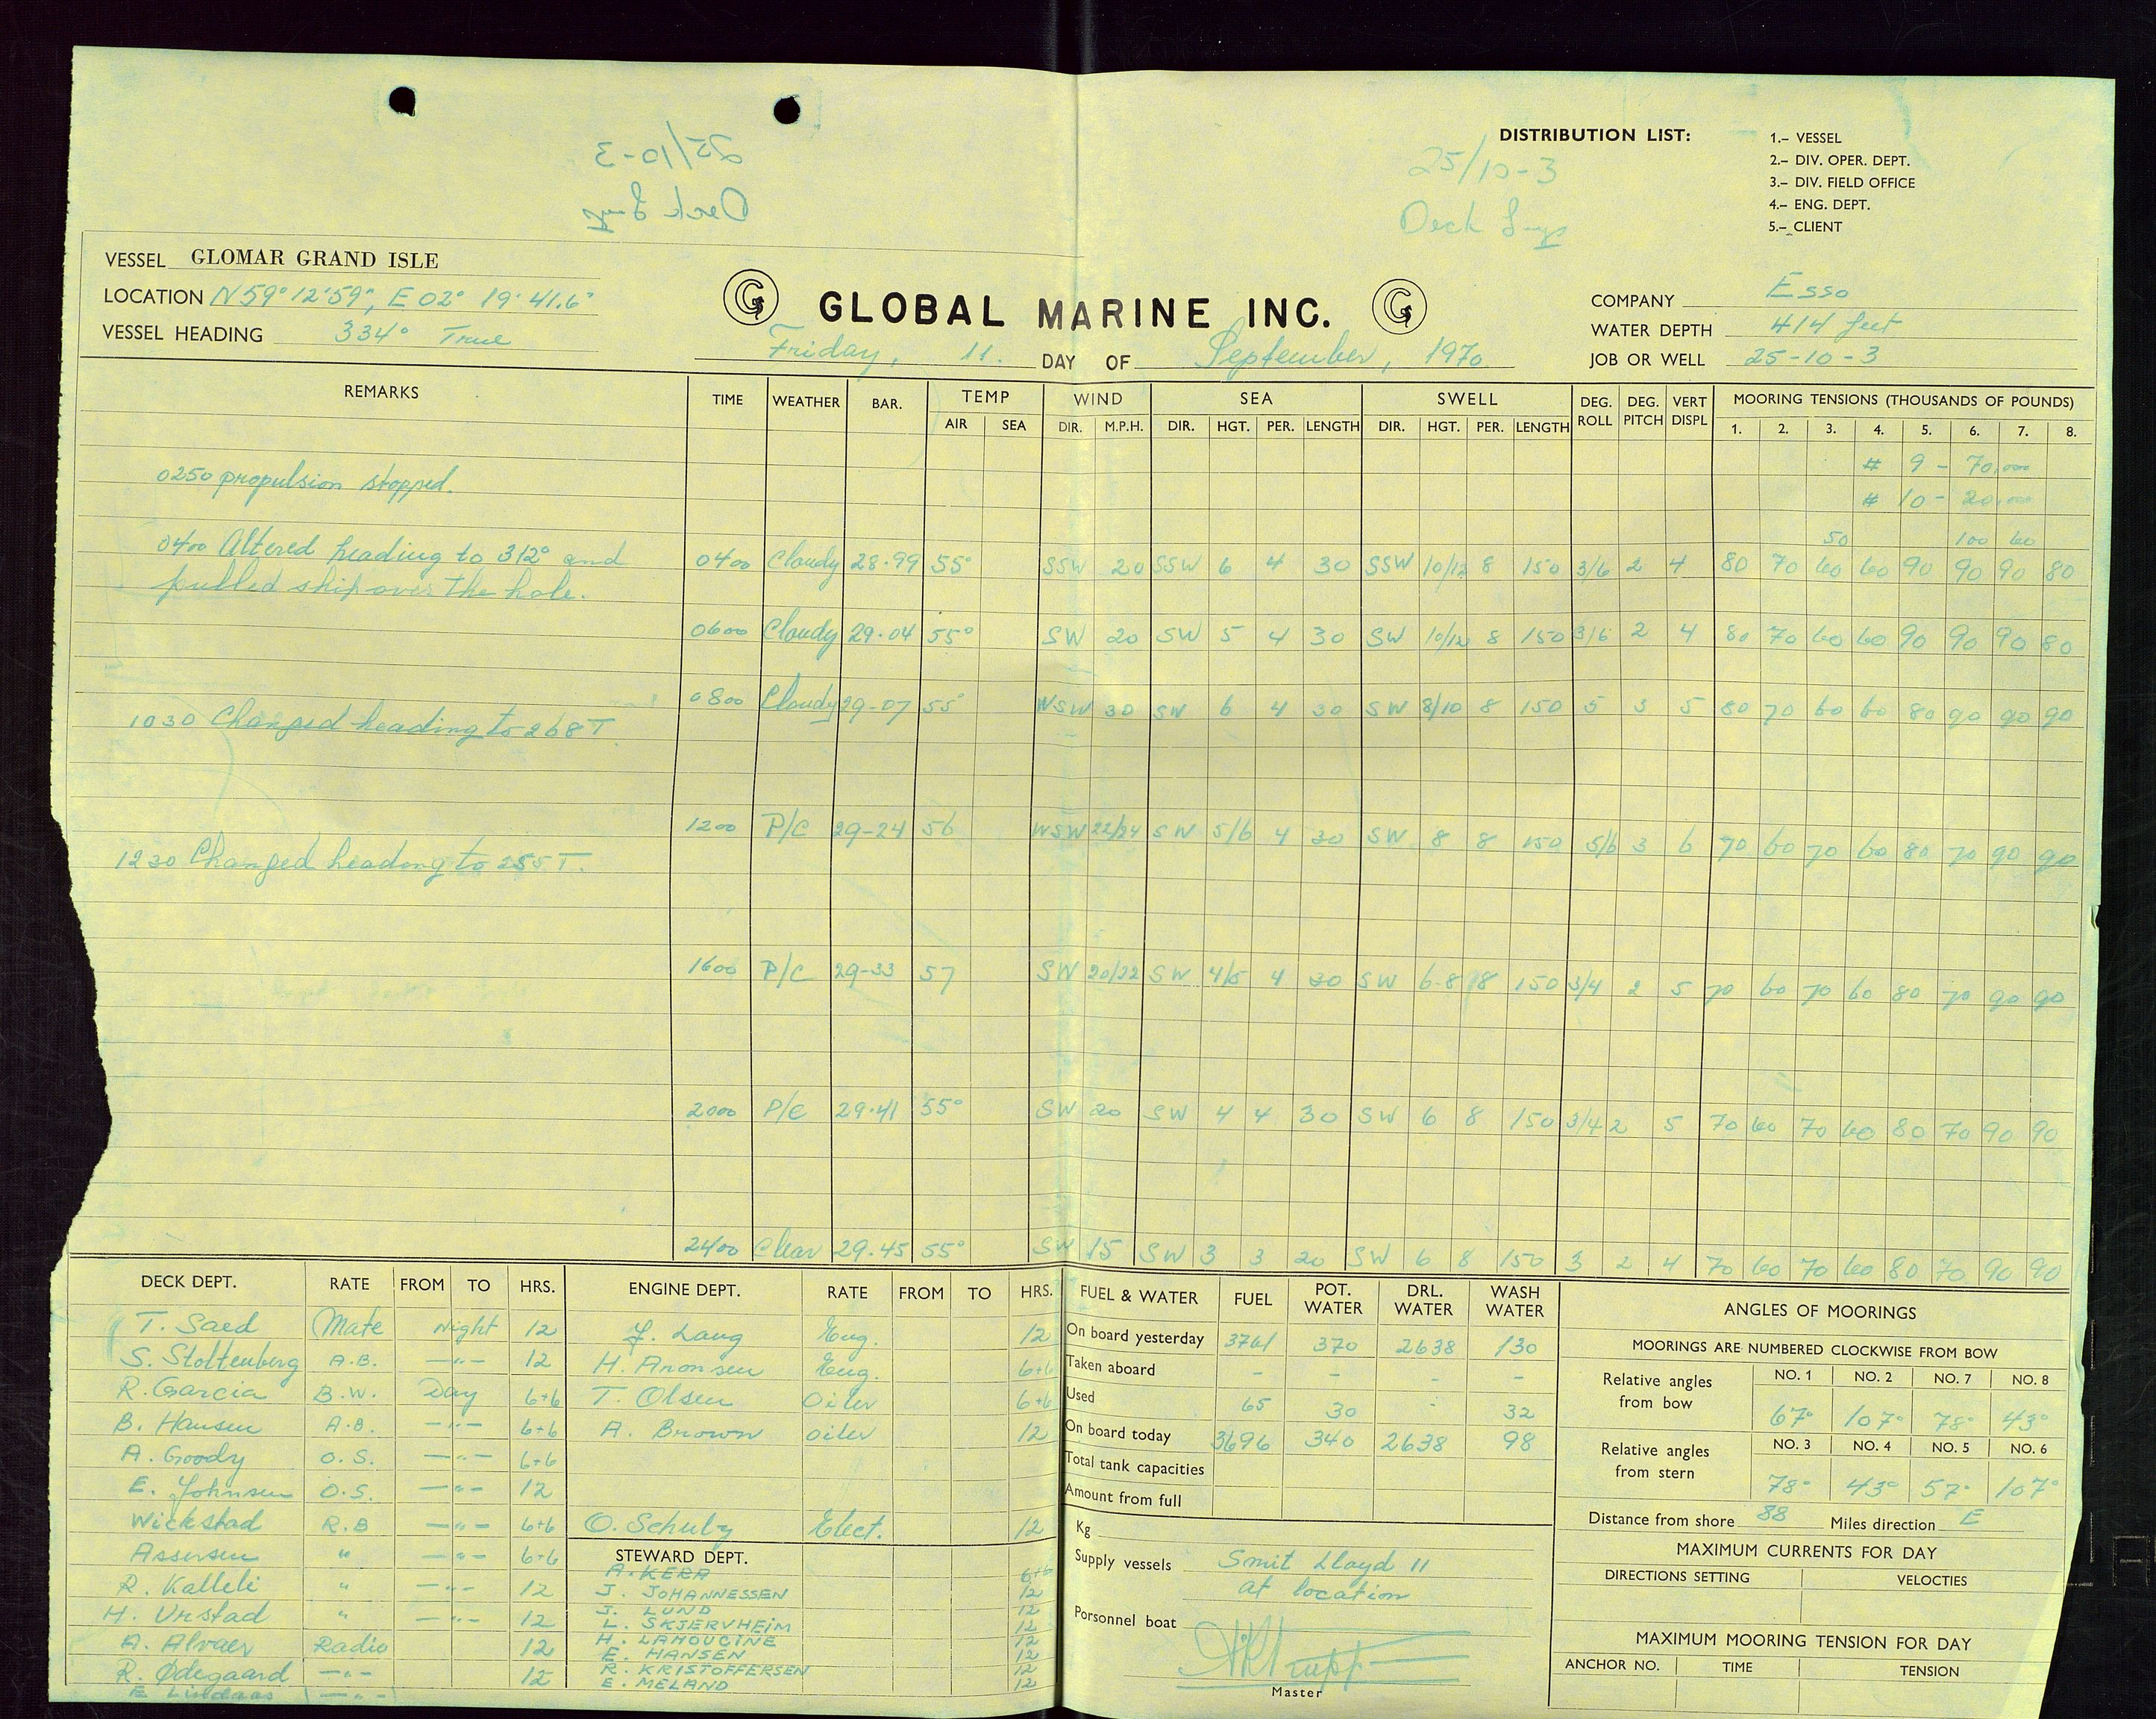 25/10-3
Deck Log
DISTRIBUTION LIST:
1.- VESSEL
2.- DIV. OPER. DEPT.
3.- DIV. FIELD OFFICE
4.- ENG. DEPT.
5.- CLIENT
VESSEL GLOMAR GRAND ISLE
LOCATION N 59° 12' 59", E 02° 19' 41.6"
VESSEL HEADING 334° True
GLOBAL MARINE INC.
Friday, 11. DAY OF September, 1970
COMPANY Esso
WATER DEPTH 414 feet
JOB OR WELL 25-10-3
REMARKS TIME WEATHER BAR. TEMP WIND SEA SWELL DEG. ROLL DEG. PITCH VERT DISPL MOORING TENSIONS (THOUSANDS OF POUNDS)
AIR SEA DIR. M.P.H. DIR. HGT. PER. LENGTH DIR. HGT. PER. LENGTH 1. 2. 3. 4. 5. 6. 7. 8.
# 9 - 70,000
0250 propulsion stopped.
# 10 - 20,000
50 100 60
0400 Altered heading to 312° and
pulled ship over the hole.
0400 Cloudy 28.99 55° SSW 20 SSW 6 4 30 SSW 10/12 8 150 3/6 2 4 80 70 60 60 90 90 90 80
0600 Cloudy 29.04 55° SW 20 SW 5 4 30 SW 10/12 8 150 3/6 2 4 80 70 60 60 90 90 90 80
0800 Cloudy 29-07 55° WSW 30 SW 6 4 30 SW 8/10 8 150 5 3 5 80 70 60 60 80 90 90 90
1030 Changed heading to 268 T
1200 P/C 29-24 56 WSW 22/24 SW 5/6 4 30 SW 8 8 150 5/6 3 6 70 60 70 60 80 70 90 90
1230 Changed heading to 255 T.
1600 P/C 29-33 57 SW 20/22 SW 4/5 4 30 SW 6-8 8 150 3/4 2 5 70 60 70 60 80 70 90 90
2000 P/C 29.41 55° SW 20 SW 4 4 30 SW 6 8 150 3/4 2 5 70 60 70 60 80 70 90 90
2400 Clear 29.45 55° SW 15 SW 3 3 20 SW 6 8 150 3 2 4 70 60 70 60 80 70 90 90
DECK DEPT. RATE FROM TO HRS.
T. Saed Mate Night 12
S. Stoltenberg A.B. —"— 12
R. Garcia B.W. Day 6+6
B. Hansen A.B. —"— 6+6
A. Goody O.S. —"— 6+6
E. Johnsen O.S. —"— 12
Wickstad R.B —"— 6+6
Assersen " —"— 6+6
R. Kalleli " —"— 12
H. Urstad " —"— 12
A. Alvaer Radio 12
R. Ødegaard —"— 12
ENGINE DEPT. RATE FROM TO HRS.
J. Lang Eng. 12
H. Aronsen Eng. 6+6
T. Olsen Oiler 6+6
A. Brown oiler 12
O. Schulz Elect. 12
STEWARD DEPT.
A. KERR 6+6
J. JOHANNESSEN 12
J. LUND 12
L. SKJERVHEIM 12
H. LAHOUCINE 12
E. HANSEN 12
R. KRISTOFFERSEN 12
E. MELAND 12
FUEL & WATER FUEL POT. WATER DRL. WATER WASH WATER
On board yesterday 3761 370 2638 130
Taken aboard - - - -
Used 65 30 - 32
On board today 3696 340 2638 98
Total tank capacities
Amount from full
Kg
Supply vessels Smit Lloyd 11
at location
Porsonnel boat
Master
ANGLES OF MOORINGS
MOORINGS ARE NUMBERED CLOCKWISE FROM BOW
Relative angles from bow NO. 1 NO. 2 NO. 7 NO. 8
67° 107° 78° 43°
Relative angles from stern NO. 3 NO. 4 NO. 5 NO. 6
78° 43° 57° 107°
Distance from shore 88 Miles direction E
MAXIMUM CURRENTS FOR DAY
DIRECTIONS SETTING VELOCTIES
MAXIMUM MOORING TENSION FOR DAY
ANCHOR NO. TIME TENSION